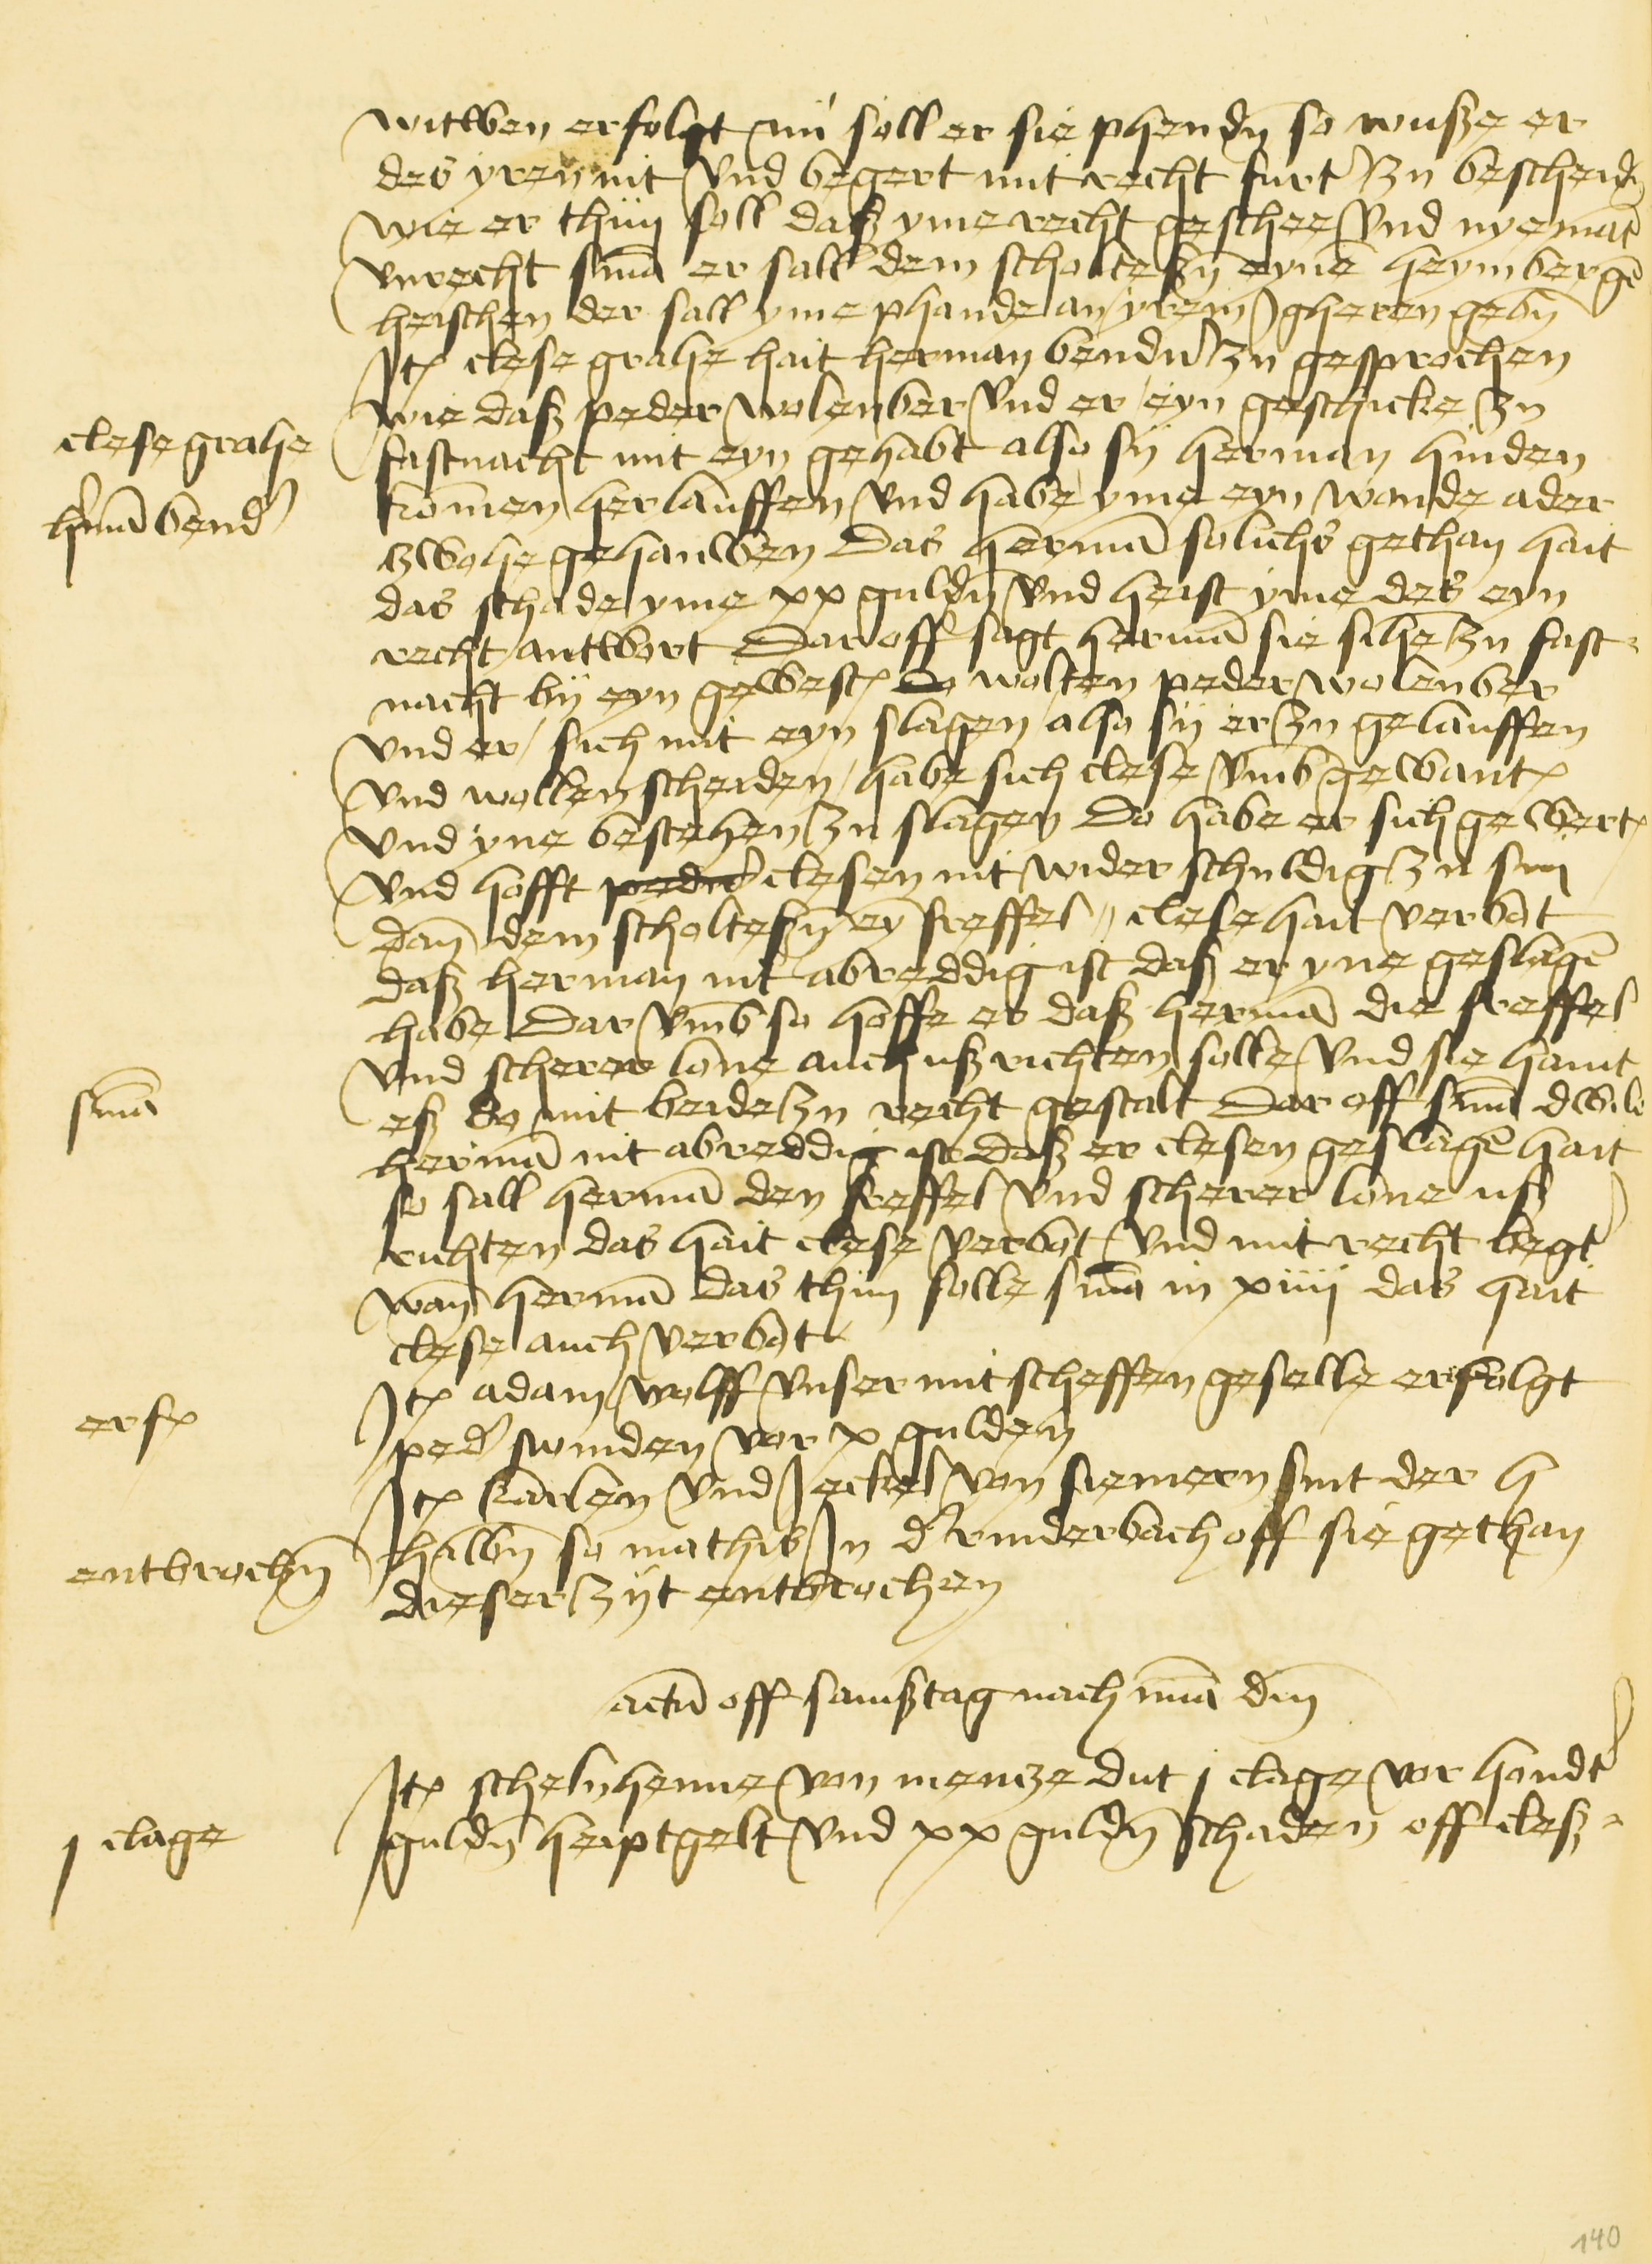 wittwen erfolgt nu soll er sie phendn̄ so wusße er
des yren nit vnd begert mit recht furt' zu bescheidn̄
wie er thun soll daß yme recht geschee vnd nyemāt
vnrecht sn̄ia er sall dem scholteßn̄ eynē heymbergē
heischen der sall yme phande an yrem Igheren gebn̄
Itē clese grahe hait herman bend' zu gesprochen
wie daß peder wolenber vnd er eyn geschicke zu
clese grahe
fastnacht mit eyn gehabt also sy herman hinden
h'mā bend'
kom̄en her lauffen vnd habe yme eyn wonde ader
zwohe gehauwen Das hermā solichs gethan hait
das schade yme xx guldn̄ vnd heist yme des eyn
recht antwort Dar off sagt hermā sie sihe zu fast-
nacht by eyn gewest Do wolten peder wolenber
vnd er sich mit eyn slagen also sy er zu gelauffen
vnd wollen scheiden habe sich clese vmb gewant
vnd yne bestehen zu slagen Do habe er sich gewert
vnd hofft peder clesen nit wider schuldig zu sin
dan̄ dem scholteßn̄ eȳ freffel clese hait verbot
daß herman nit abreddig ist daß er yne geslagē
habe Dar vmb so hoffe er daß hermā die freffel
vnd scherer lone auch ußrichten solle vnd sie haint
sn̄ia
eß do mit beide zu recht gestalt Dar off sn̄ia dwile
hermā nit abreddig ist daß er clesen geslagē hait
so sall hermā den freffel vnd scherer lone uß
richten das hait clese verbot vnd mit recht begt'
wan̄ hermā das thun solle sn̄ia in xiiij das hait
clese auch verbot
Itē adam wolff vnser mit scheffen geselle erfolgt
erf
ped' swinden vor x gulden
Itē karlen vnd Jeckel von siemern sint der h
halbn̄ so mathis In d' rinderbach off sie gethan
entbrochn̄
dieser zyt entbrochen
actū off samßtag nach mīa dn̄i
Itē scheln henne von mentze dut j clage vor hondt'
j clage
guldn̄ heiptgelt vnd xx guldn̄ schaden off cleß-
140